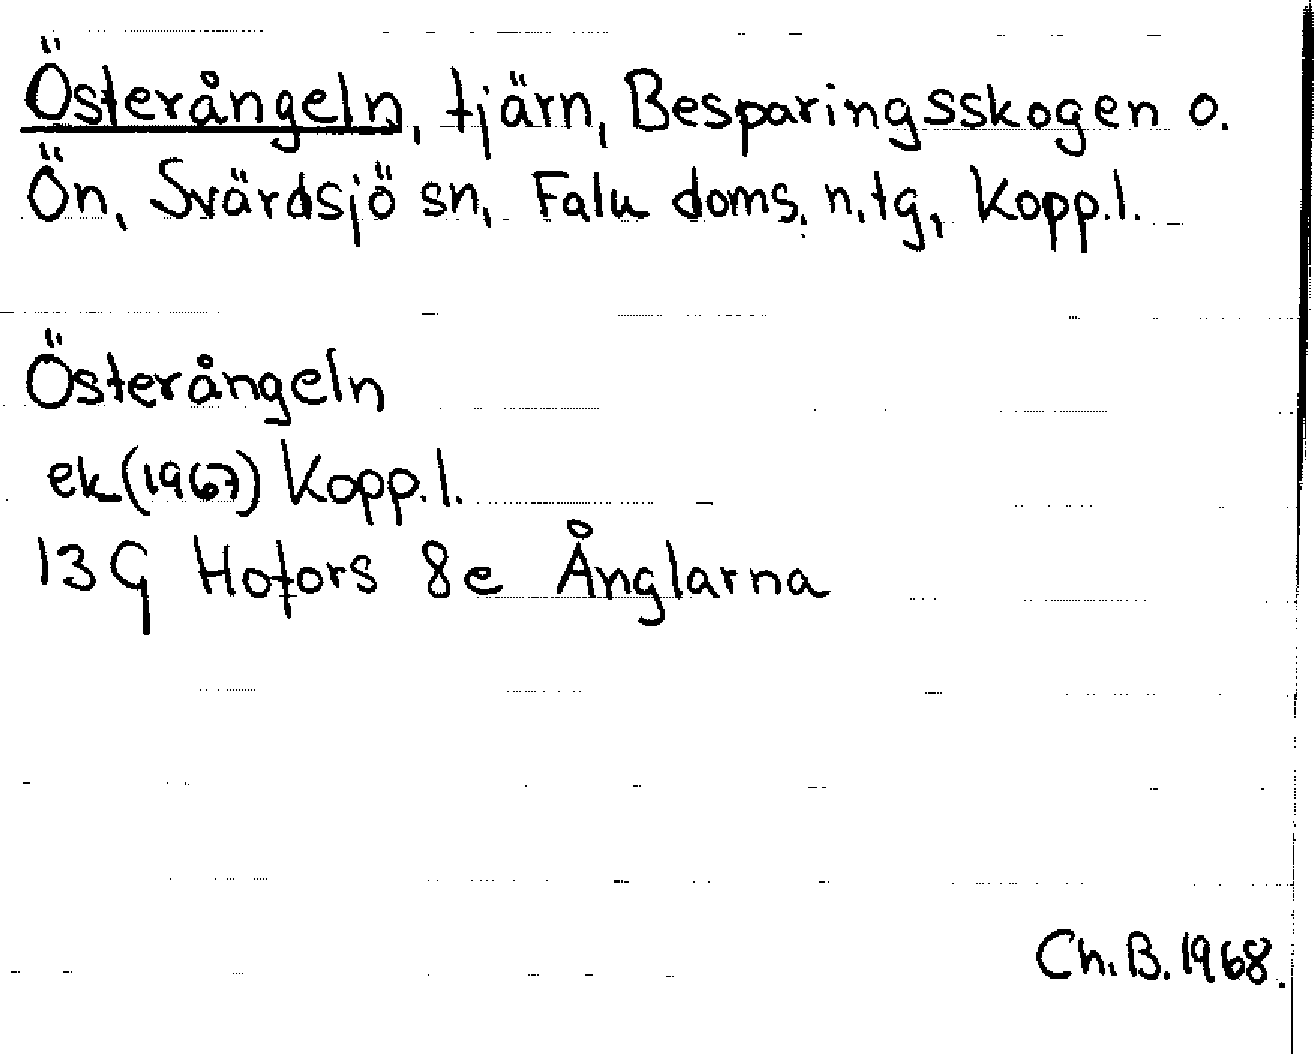 Österångeln, tjärn, Besparingsskogen o.
Ön, Svärdsjö sn, Falu doms. n. tg, Kopp.l.
Österångeln
ek (1967) Kopp.l.
13 G Hofors 8e Ånglarna
Ch. B. 1968.